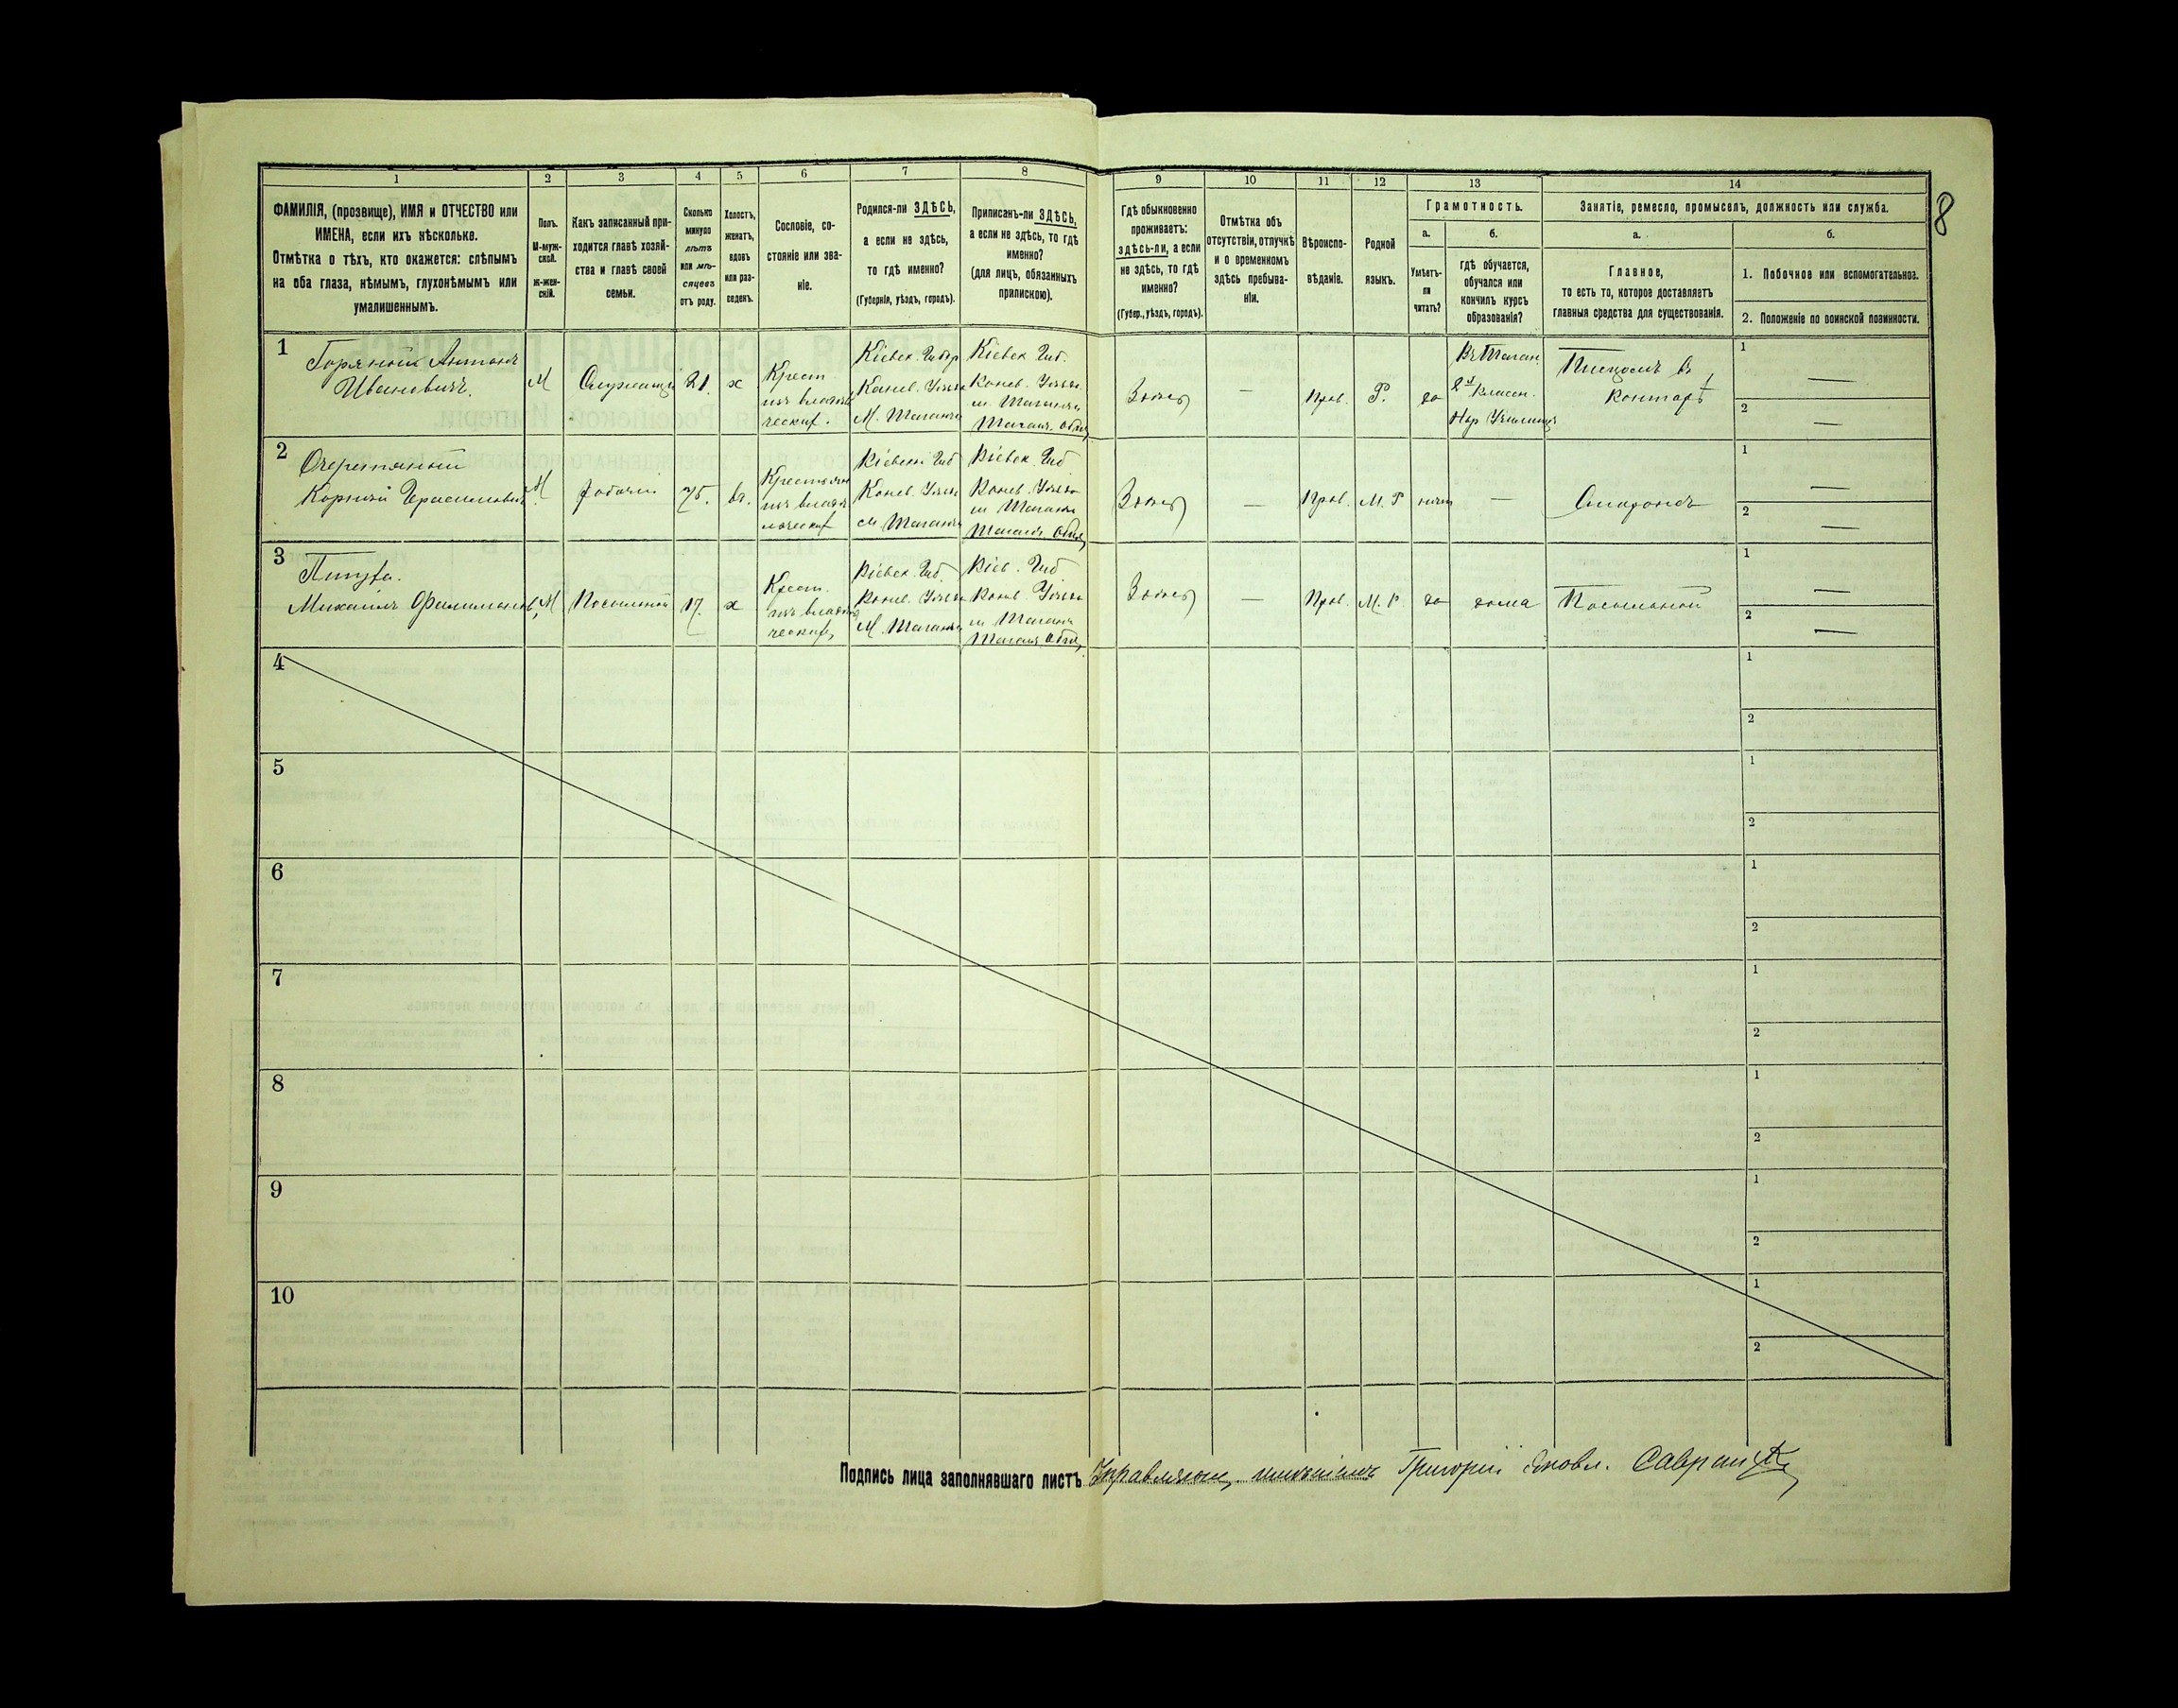 1 2 3 4 5 6 7 8 9 10 11 12 13 14
8
ФАМИЛІЯ, (прозвище), ИМЯ и ОТЧЕСТВО или
ИМЕНА, если ихъ нѣсколько.
Отмѣтка о тѣхъ, кто окажется: слѣпымъ
на оба глаза, нѣмымъ, глухонѣмымъ или
умалишеннымъ.
Полъ.
М-муж-
ской.
ж-жен-
скій.
Какъ записанный при-
ходится главѣ хозяй-
ства и главѣ своей
семьи.
Сколько
минуло
лѣтъ
или мѣ-
сяцевъ
отъ роду.
Холостъ,
женатъ,
вдовъ
или раз-
веденъ.
Сословіе, со-
стояніе или зва-
ніе.
Родился-ли ЗДѢСЬ,
а если не здѣсь,
то гдѣ именно?
(Губернія, уѣздъ, городъ).
Приписанъ-ли ЗДѢСЬ,
а если не здѣсь, то гдѣ
именно?
(для лицъ, обязанныхъ
припискою).
Гдѣ обыкновенно
проживаетъ:
здѣсь-ли, а если
не здѣсь, то гдѣ
именно?
(Губер., уѣздъ, городъ).
Отмѣтка объ
отсутствіи, отлучкѣ
и о временномъ
здѣсь пребыва-
ніи.
Вѣроиспо-
вѣданіе.
Родной
языкъ.
Грамотность.
а.
Умѣетъ-
ли
читать?
б.
гдѣ обучается,
обучался или
кончилъ курсъ
образованія?
Занятіе, ремесло, промыселъ, должность или служба.
а.
Главное,
то есть то, которое доставляетъ
главныя средства для существованія.
б.
1. Побочное или вспомогательное.
2. Положеніе по воинской повинности.
1
Антонъ
Ивановичъ.
М
21.
х
Крест.
Кіевск. Губер
Канев. Уѣзда
М. Таганча
Кіевск. Губ.
Канев. Уѣзда
м. Таганчи
Таганч. Общ.
Здѣсь
—
Прав.
Р.
да
Въ Таган.
2х класси.
Нар Училищѣ
въ
конторѣ
1 —
2 —
2
Очеретяный
Корній Герасимовичъ
М
рабочій
75.
вд.
Кіевск. Губ
Канев. Уѣзда
м. Таганча
Кіевск. Губ.
Канев. Уѣзда
м Таганча
Таганч. Общ.
Здѣсь
—
Прав.
М. Р
—
1 —
2 —
3
Михаилъ
М
Посыльный
17.
х
Крест.
Кіевск. Губ.
Канев. Уѣзда
М. Таганча
Кіев. Губ
Канев. Уѣзда
м Таганча
Таганч. Общ.
Здѣсь
—
Прав.
М. Р.
да
дома
Посыльный
1 —
2 —
4
1
2
5
1
2
6
1
2
7
1
2
8
1
2
9
1
2
10
1
2
Подпись лица заполнявшаго листъ Управляющ. имѣніемъ Григорій